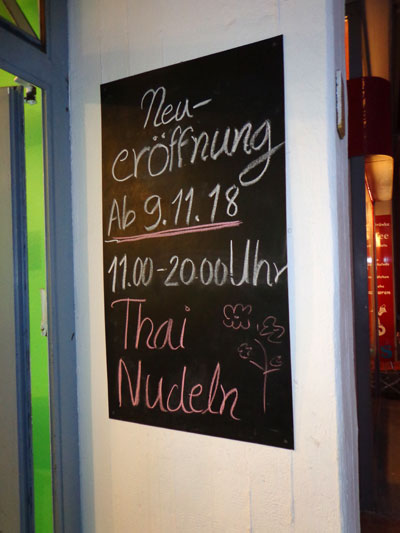 Neu-
eröffnung
Ab 9.11.18
11.00-20.00 Uhr
Thai
Nudeln